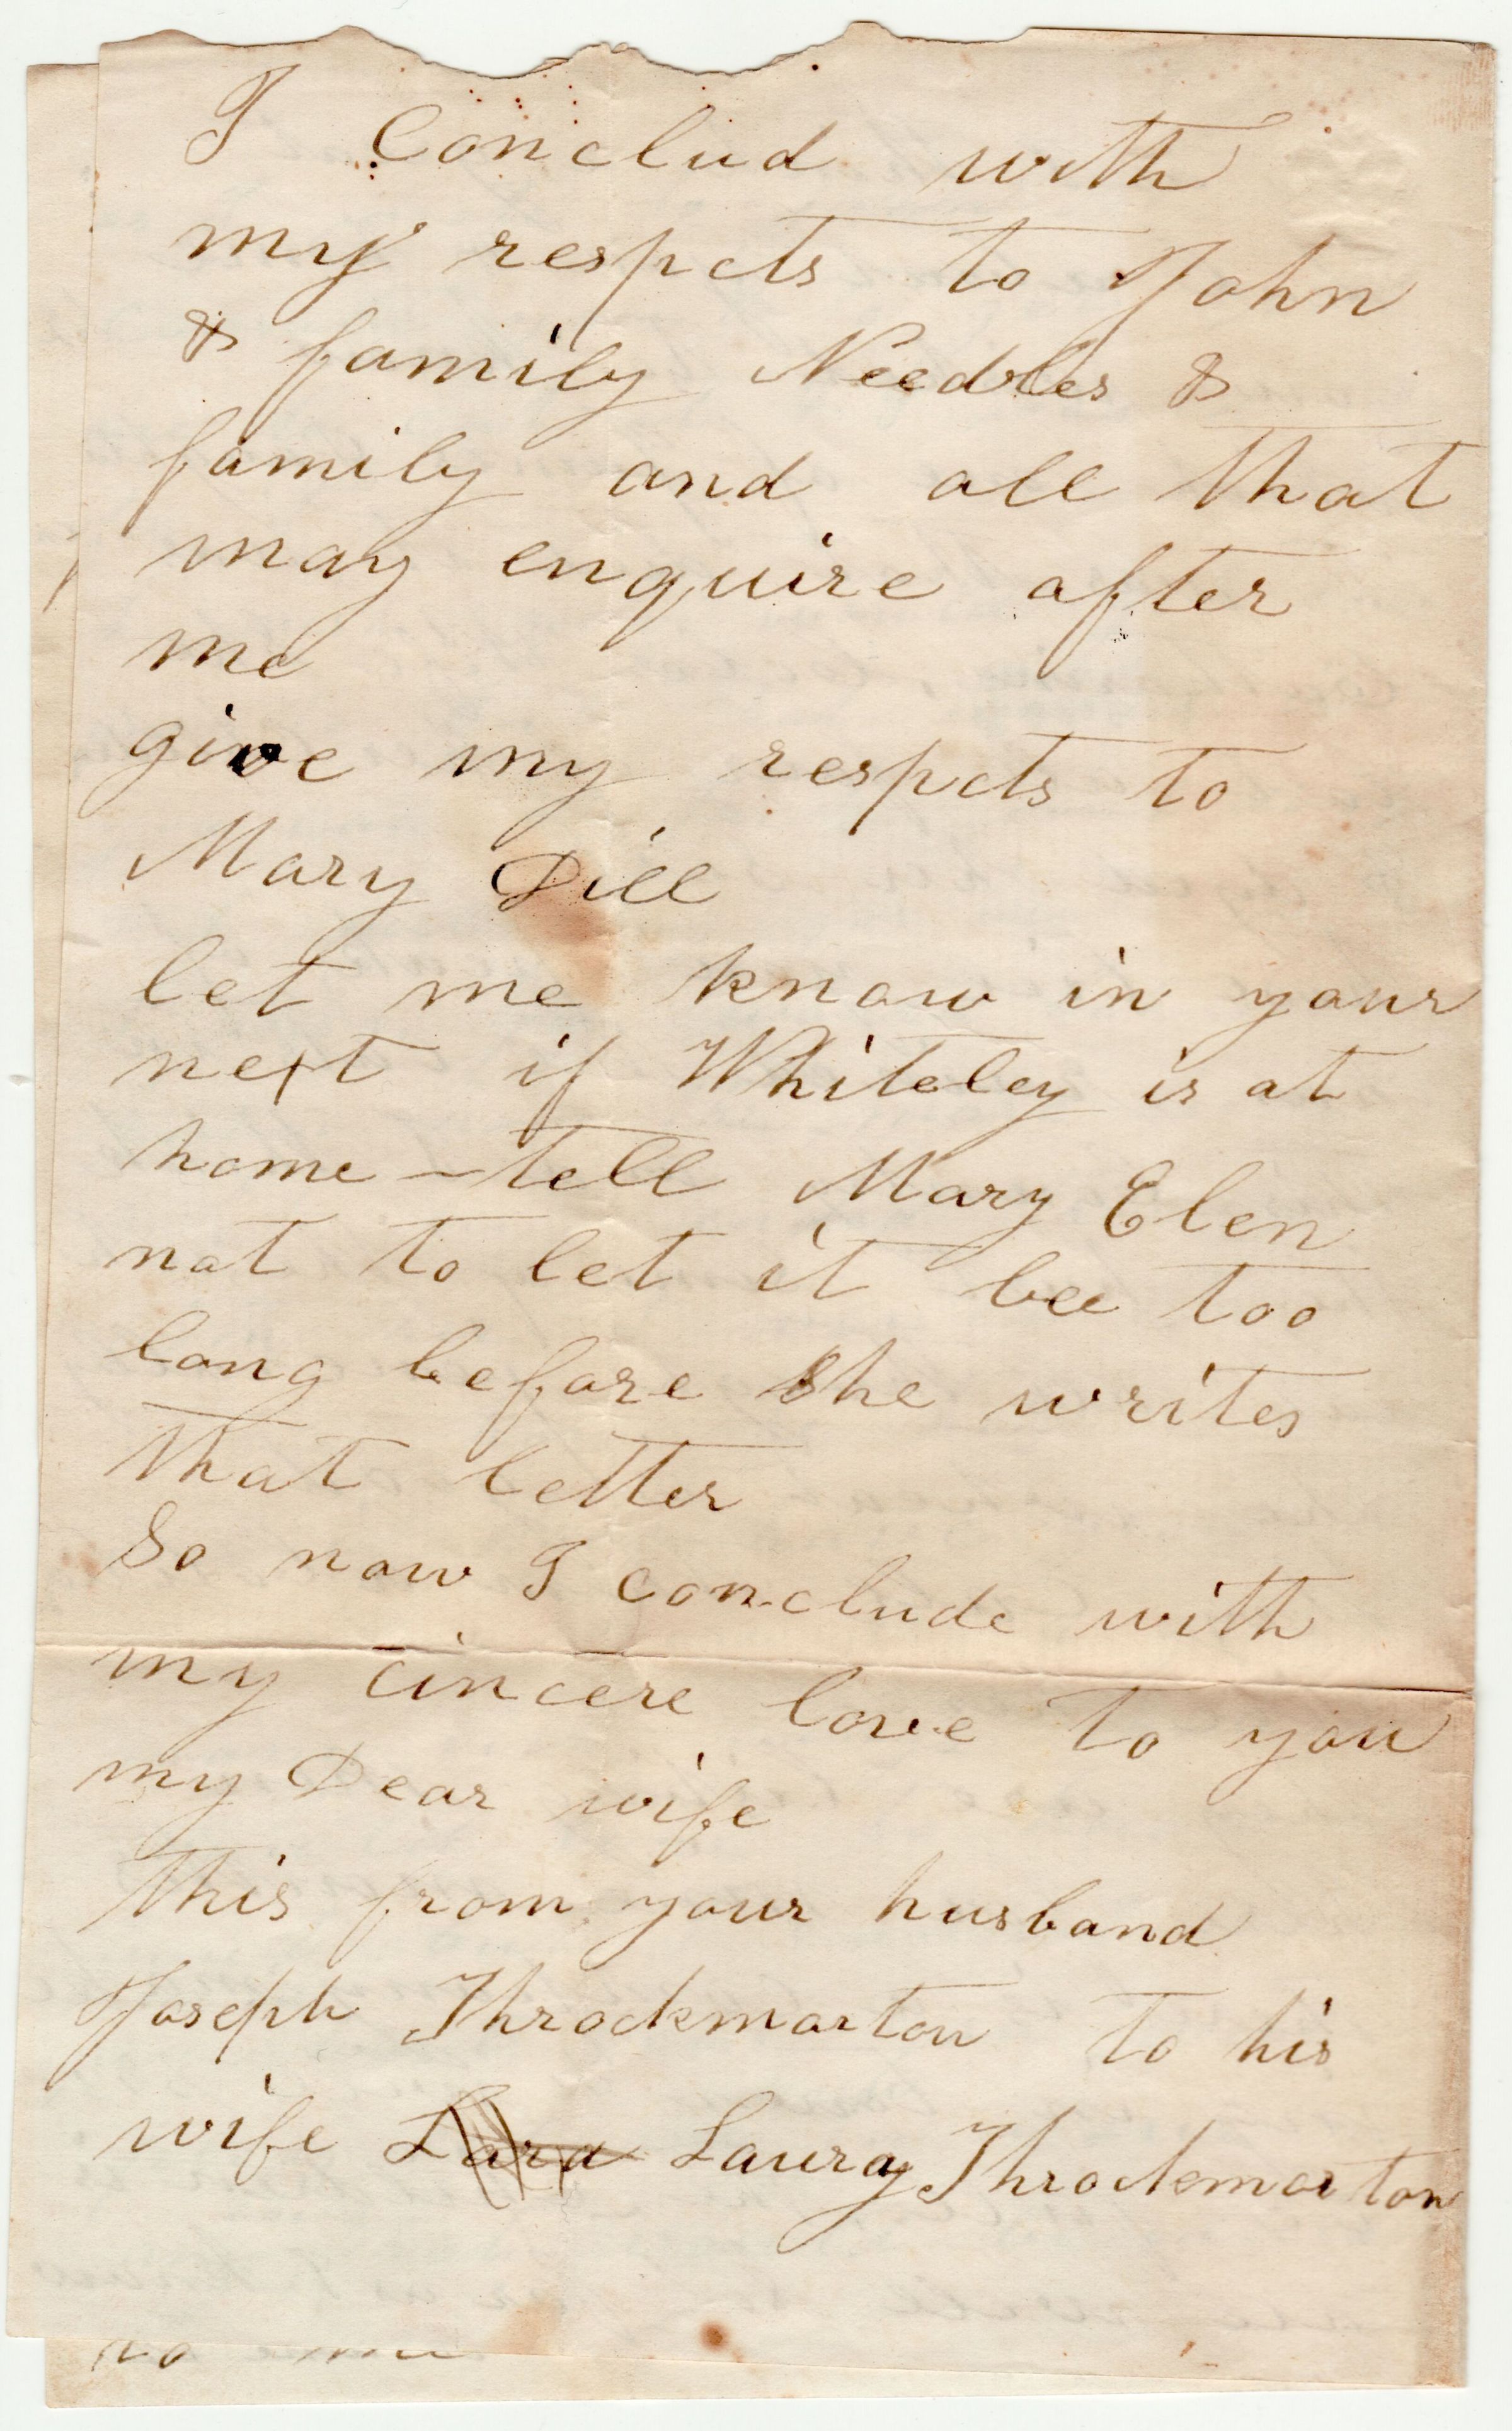 I Conclud with
my respcts to John
& family Needles &
family and all that
may enquire after
me
give my respcts to
Mary Dill
let me know in your
next if Whiteley is at
home – tell Mary Elen
not to let it bee too
long before she writes
that letter
So now I conclude with
my cincere love to you
my Dear wife
this from your husband
Joseph Throckmorton to his
wife Lara Lauray Throckmorton